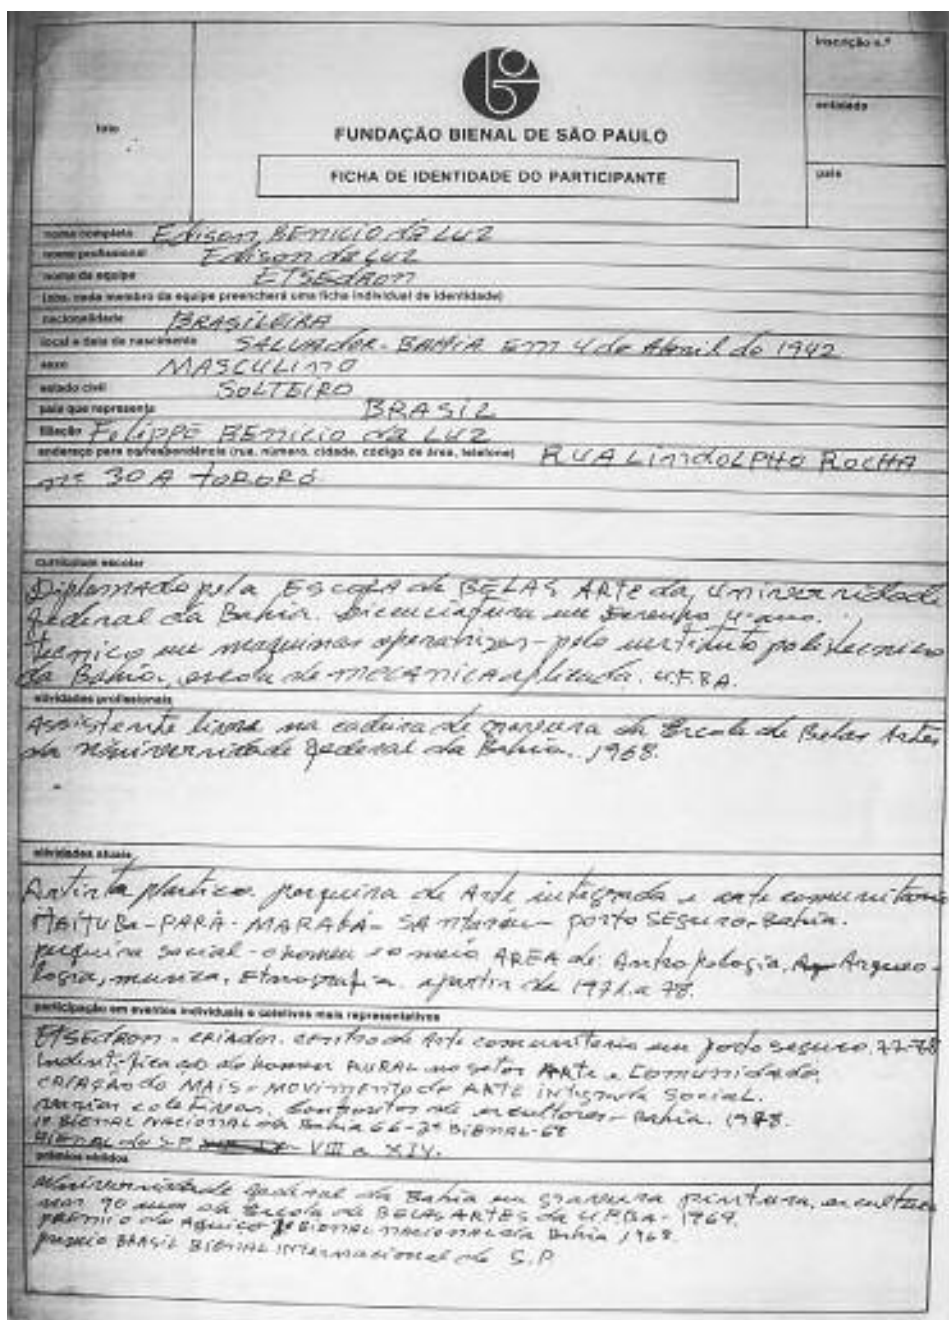 inscrição n.º
entidade
foto
FUNDAÇÃO BIENAL DE SÃO PAULO
FICHA DE IDENTIDADE DO PARTICIPANTE
país
nome completo Edison BENICIO da LUZ
nome profissional Edison da LUZ
nome da equipe ETSEDRON
(obs. cada membro da equipe preencherá uma ficha individual de identidade)
nacionalidade BRASILEIRA
local e data de nascimento SALVADOR - BAHIA Em 4 de Abril de 1942
sexo MASCULINO
estado civil SOLTEIRO
país que representa BRASIL
filiação Felippe BENICIO da LUZ
endereço para correspondência (rua, número, cidade, código de área, telefone) RUA LindOLPHO ROCHA
nº 30 A TORORÓ
curriculum escolar
Diplomado pela ESCOLA de BELAS ARTE da, Universidade
Federal da Bahia. Licenciatura em Desenho 4º ano.
Técnico em maquinas operatrizes - pelo instituto politecnico
da Bahia. escola de MECANICA aplicada. U.F.BA.
atividades profissionais
Assistente livre na cadeira de gravura da Escola de Belas Artes
da Universidade Federal da Bahia. 1968.
atividades atuais
Artista plastico. pesquisa de Arte integrada e arte comunitaria
ITAITUBA - PARÁ - MARABÁ - SANTARÉM - PORTO SEGURO - Bahia.
pesquisa social - o homem e o meio AREA de: Antropologia, Arqueo-
logia, musica, Etnografia. apartir de 1971 a 78.
participação em eventos individuais e coletivos mais representativos
ETSEDRON - CRIADOR. centro de Arte comunitaria em porto seguro. 77-78
do homem RURAL no setor ARTE e COMUNIDADE.
CRIAÇÃO do MAIS - MOVIMENTO de ARTE INTEGRADA SOCIAL.
varias coletivas. de escultores - Bahia. 1978.
1ª BIENAL NACIONAL da Bahia 66 - 2ª BIENAL - 68
BIENAL de S.P. VIII a XIV.
prêmios obtidos
Universidade Federal da Bahia em gravura pintura, escultura
nos 90 anos da Escola de BELAS ARTES da U.F.BA - 1969.
PREMIO de BIENAL NACIONAL da Bahia 1968.
premio BRASIL BIENAL INTERNACIONAL de S.P.